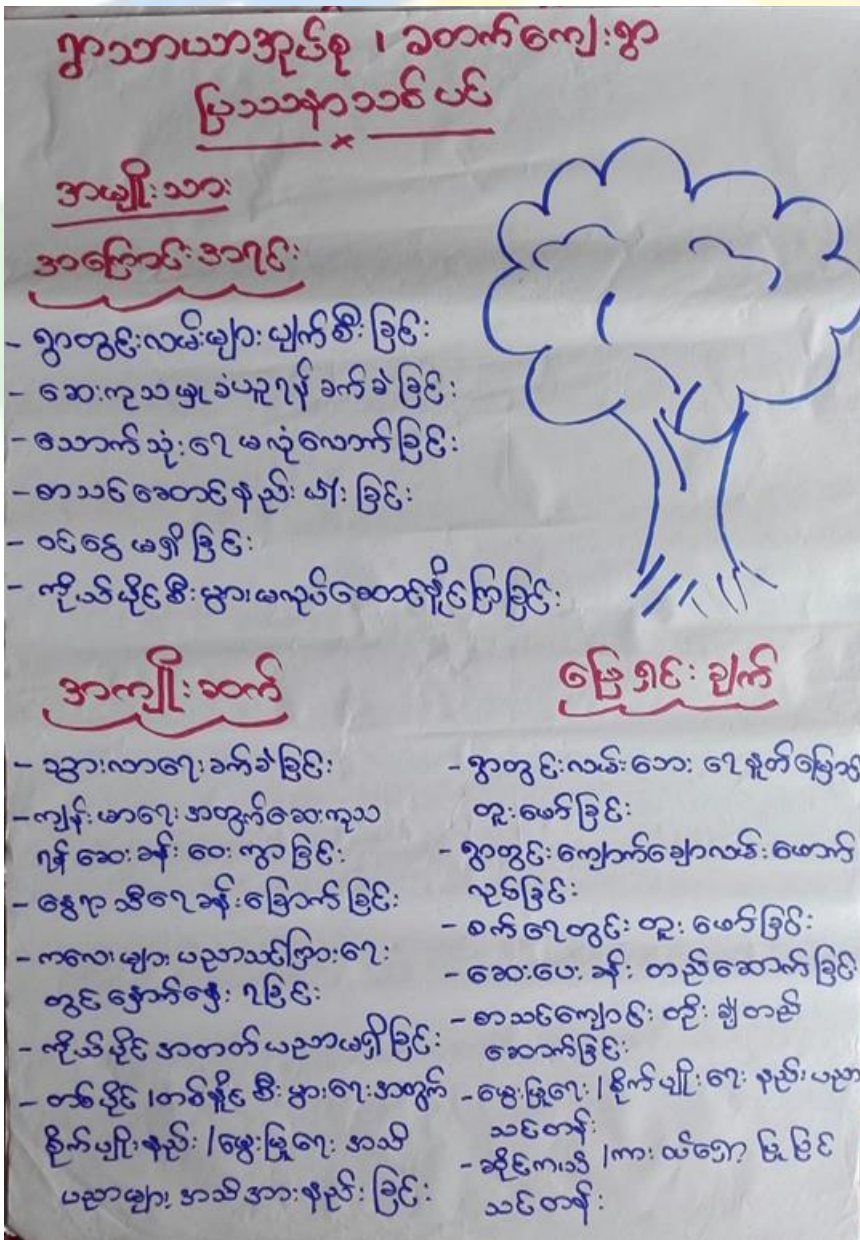 ရွာသာယာအုပ်စု ၊ ခတက်ကျေးရွာ
ပြဿနာသစ်ပင်
အမျိုးသား
အကြောင်းအရင်း
- ရွာတွင်းလမ်းများ ပျက်စီးခြင်း
- ဆေးကုသမှုခံယူရန် ခက်ခဲခြင်း
- သောက်သုံးရေ မလုံလောက်ခြင်း
- စာသင်ဆောင်နည်းပါးခြင်း
- ဝင်ငွေ မရှိခြင်း
- ကိုယ်ပိုင်စီးပွားမလုပ်ဆောင်နိုင်ကြခြင်း
အကျိုးဆက်
- သွားလာရေးခက်ခဲခြင်း
- ကျန်းမာရေးအတွက်ဆေးကုသ
ရန် ဆေးခန်းဝေးကွာခြင်း
- နွေရာသီရေခန်းခြောက်ခြင်း
- ကလေးများ ပညာသင်ကြားရေး
တွင် နှောက်နှေးရခြင်း
- ကိုယ်ပိုင် အတတ်ပညာမရှိခြင်း
- တစ်ပိုင်/တစ်နိုင်စီးပွားရေးအတွက်
စိုက်ပျိုးနည်း/မွေးမြူရေး အသိ
ပညာများ အသိအားနည်းခြင်း
ဖြေရှင်းချက်
- ရွာတွင်းလမ်းဘေး ရေနှုတ်မြောင်း
တူးဖော်ခြင်း
- ရွာတွင်းကျောက်ချောလမ်းဖောက်
လုပ်ခြင်း
- စက်ရေတွင်း တူးဖော်ခြင်း
- ဆေးပေးခန်း တည်ဆောက်ခြင်း
- စာသင်ကျောင်း တိုးချဲ့တည်
ဆောက်ခြင်း
- မွေးမြူရေး/စိုက်ပျိုးရေး နည်းပညာ
သင်တန်း
- ဆိုင်ကယ်/ကား ထော်လာ ပြုပြင်
သင်တန်း